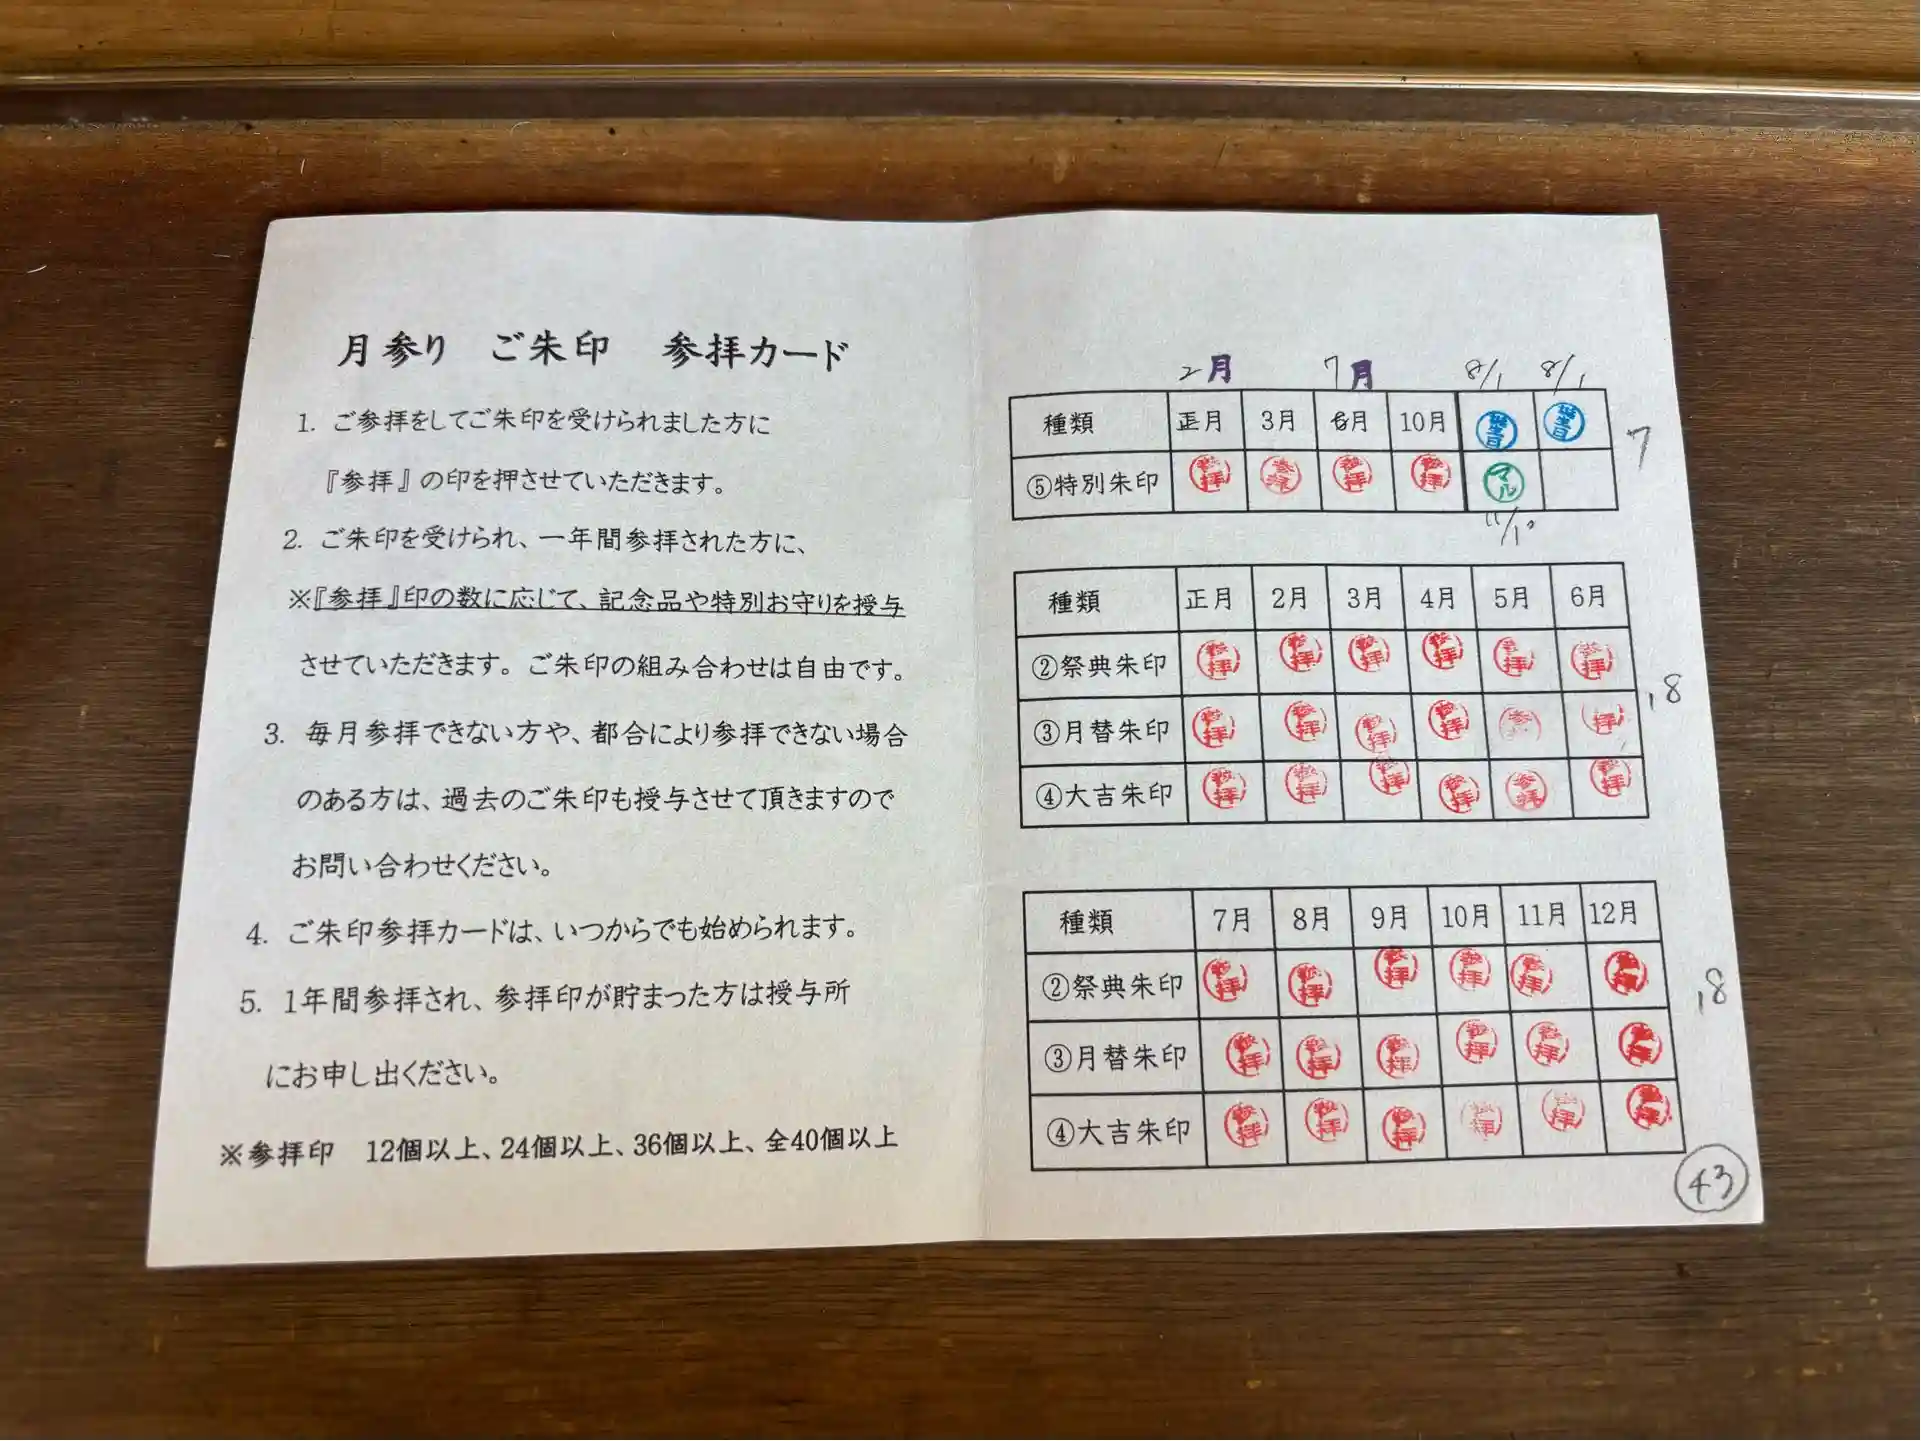 月参り ご朱印 参拝カード
1. ご参拝をしてご朱印を受けられました方に
『参拝』の印を押させていただきます。
2. ご朱印を受けられ、一年間参拝された方に、
※『参拝』印の数に応じて、記念品や特別お守りを授与
させていただきます。ご朱印の組み合わせは自由です。
3. 毎月参拝できない方や、都合により参拝できない場合
のある方は、過去のご朱印も授与させて頂きますので
お問い合わせください。
4. ご朱印参拝カードは、いつからでも始められます。
5. 1年間参拝され、参拝印が貯まった方は授与所
にお申し出ください。
※参拝印 12個以上、24個以上、36個以上、全40個以上
2月 7月 8/1 8/1
種類 正月 3月 6月 10月 誕生日 誕生日
⑤特別朱印 参拝 参拝 参拝 参拝 マル
7
11/10
種類 正月 2月 3月 4月 5月 6月
②祭典朱印 参拝 参拝 参拝 参拝 参拝 参拝
③月替朱印 参拝 参拝 参拝 参拝 参 拝
④大吉朱印 参拝 参拝 参拝 参拝 参拝 参拝
18
種類 7月 8月 9月 10月 11月 12月
②祭典朱印 参拝 参拝 参拝 参拝 参拝 参拝
③月替朱印 参拝 参拝 参拝 参拝 参拝 参拝
④大吉朱印 参拝 参拝 参拝 参拝 参拝 参拝
18
43